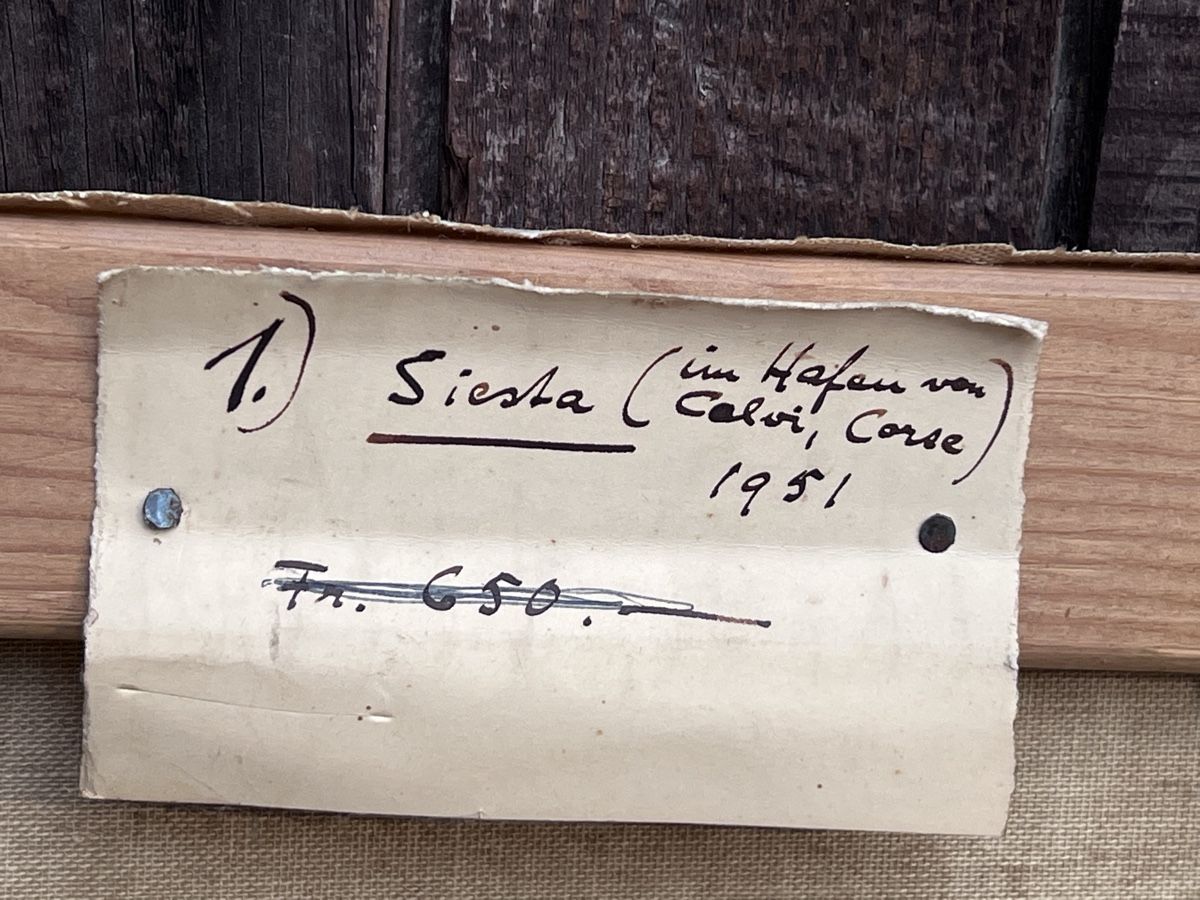 1.) Siesta (im Hafen von
Calvi, Corse)
1951
Fr. 650.